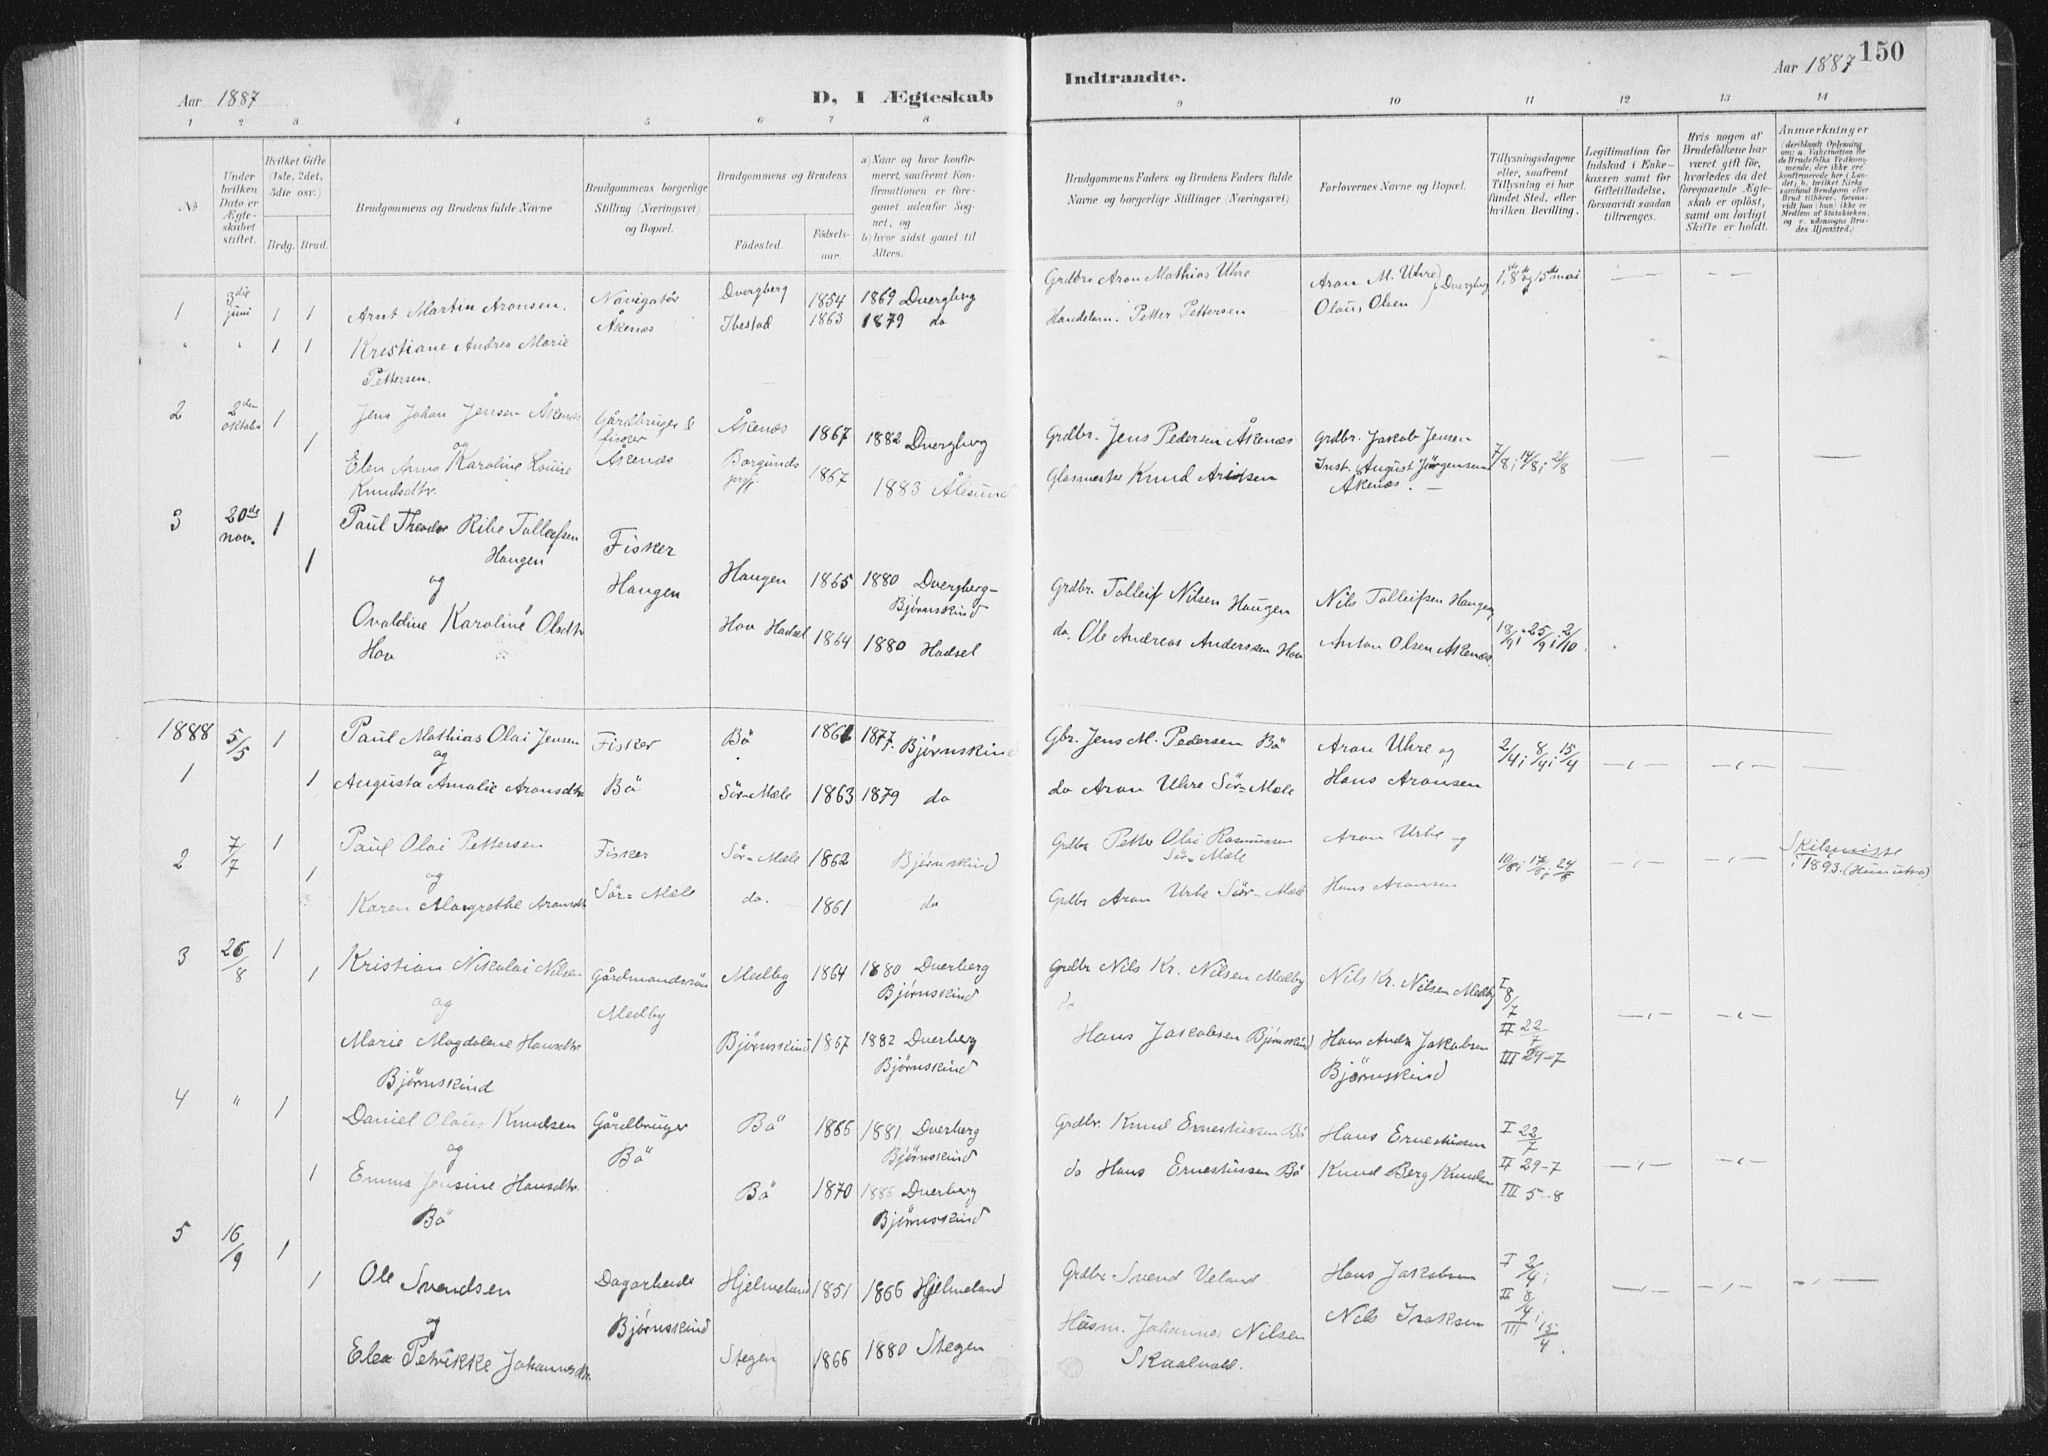 Aar 1887
D, I Ægteskab
1 2 3 4 5 6 7 8
No
Under hvilken Dato er Ægteskabet stiftet.
Hvilket Gifte (1ste, 2det, 3die osv.)
Brdg. Brud.
Brudgommens og Brudens fulde Navne
Brudgommens borgerlige Stilling (Næringsvei) og Bopæl.
Brudgommens og Brudens
Fødested.
Fødselsaar.
a) Naar og hvor konfirmeret, saafremt Konfirmationen er foregaaet udenfor Sognet, og
b) hvor sidst gaaet til Alters.
1 3die juni 1 1 Arnt Martin Aronsen. Navigatør Åkenæs Dvergberg 1854 1869 Dvergberg
" " 1 1 Kristiane Andrea Marie Pettersen. Ibestad 1863 1879 do
2 2den oktober 1 Jens Johan Jensen Åkenæs Gårdbruger & fisker Åkenæs Åkenæs 1867 1882 Dvergberg
og
1 Elen Anna Karoline Louise Knudsdtr. Borgunds prgj. 1867 1883 Ålesund
3 20de nov. 1 Paul Theodor Ribe Tolleifsen Haugen Fisker Haugen Haugen 1865 1880 Dvergberg-Bjørnskind
og
1 Ovaldine Karoline Olsdtr Hov Hov Hadsel 1864 1880 Hadsel
1888
1 5/5 1 Paul Mathias Olai Jensen Fisker Bö Bö 1861 1877. Bjørnskind
og
1 Augusta Amalie Aronsdtr Sör=Mæle 1863 1879 do
2 7/7 1 Paul Olai Pettersen Fisker Sör=Mæle Sör=Mæle 1862 Bjørnskind
og
1 Karen Margrethe Aronsdtr do. 1861 do
3 26/8 1 Kristian Nikolai Nilsen Gårdmandssön Medby Medby 1864 1880 Dverberg Bjørnskind
og
1 Marie Magdalene Hansdtr. Bjørnskind Bjørnskind 1867 1882 Dverberg Bjørnskind
4 " 1 Daniel Olaus Knudsen Gårdbruger Bö Bö 1866 1881 Dverberg Bjørnskind
og
1 Emma Jensine Hansdtr. Bö Bö 1870 1886 Dverberg Bjørnskind
5 16/9 1 Ole Svendsen Dagarbeider Bjørnskind Hjelmeland 1851 1866 Hjelmeland
og
1 Elea Petrikke Johannesdtr. Stegen 1866 1880 Stegen
Indtraadte.
Aar 1887 150
9 10 11 12 13 14
Brudgommens Faders og Brudens Faders fulde Navne og borgerlige Stillinger (Næringsvei)
Forlovernes Navne og Bopæl.
Tillysningsdagene eller, saafremt Tillysning ei har fundet Sted, efter hvilken Bevilling.
Legitimation for Indskud i Enkekassen samt for Giftetilladelse, forsaavidt saadan tiltrænges.
Hvis nogen af Brudefolkene har været gift før, hvorledes da det foregaaende Ægteskab er opløst, samt om lovligt Skifte er holdt.
Anmærkninger (deriblandt Oplysning om: a. Vakcination for de Brudefolks Vedkommende, der ikke ere konfirmerede her i Landet; b. hvilket Kirkesamfund Brudgom eller Brud tilhører, forsaavidt han (hun) ikke er Medlem af Statskirken, og c. udensogns Brudes Hjemsted.)
Grdbr Aron Mathias Uhre Aron M. Uhre 1ste, 8de og 15de mai — — — —
Handelsm. Petter Pettersen Olaus Olsen } Dvergberg
Grdbr. Jens Pedersen Åkenæs Grdbr. Jakob Jensen
Glasmester Knud Arntsen Inst. August Jörgensen Åkenæs. 7/8; 14/8; 21/8 — — —
Grdbr. Tolleif Nilsen Haugen Nils Tolleifsen Haugen
do. Ole Andreas Anderssen Hov Anton Olsen Åkenæs. 18/9; 25/9; 2/10
Gbr. Jens M. Pedersen Bö Aron Uhre og 2/4; 8/4; 15/4 —„— —„— —
do Aron Uhre Sör=Mæle Hans Aronsen
Grdbr Petter Olai Rasmussen Sör=Mæle Aron Urhe og
Grdbr Aron Urhe Sör=Mæle Hans Aronsen —„— —„— Skilsmisse i 1893.
Grdbr Nils Kr. Nilsen Medby Nils Kr. Nilsen Medby I 8/7
do Hans Jakobsen Bjørnskind Hans Andr Jakobsen Bjørnskind II 22/7 III 29-7 —„— —„—
Grdbr. Knud Ernestussen Bö Hans Ernestussen I 22/7
do Hans Ernestussen Bö Knud Berg Knudsen II 29-7 III 5-8 —„— —„—
Grdbr Svend Veland Hans Jakobsen I 2/4;
Husm. Johannes Nilsen Skaalvold. Nils Isaksen II 8/4; III 15/4. —„— —„— —„—